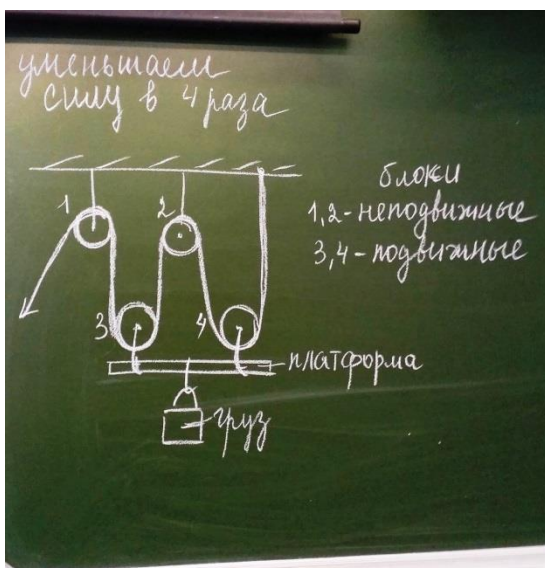 уменьшаем
силу в 4 раза
блоки
1,2-неподвижные
3,4-подвижные
1
2
3
4
платформа
груз